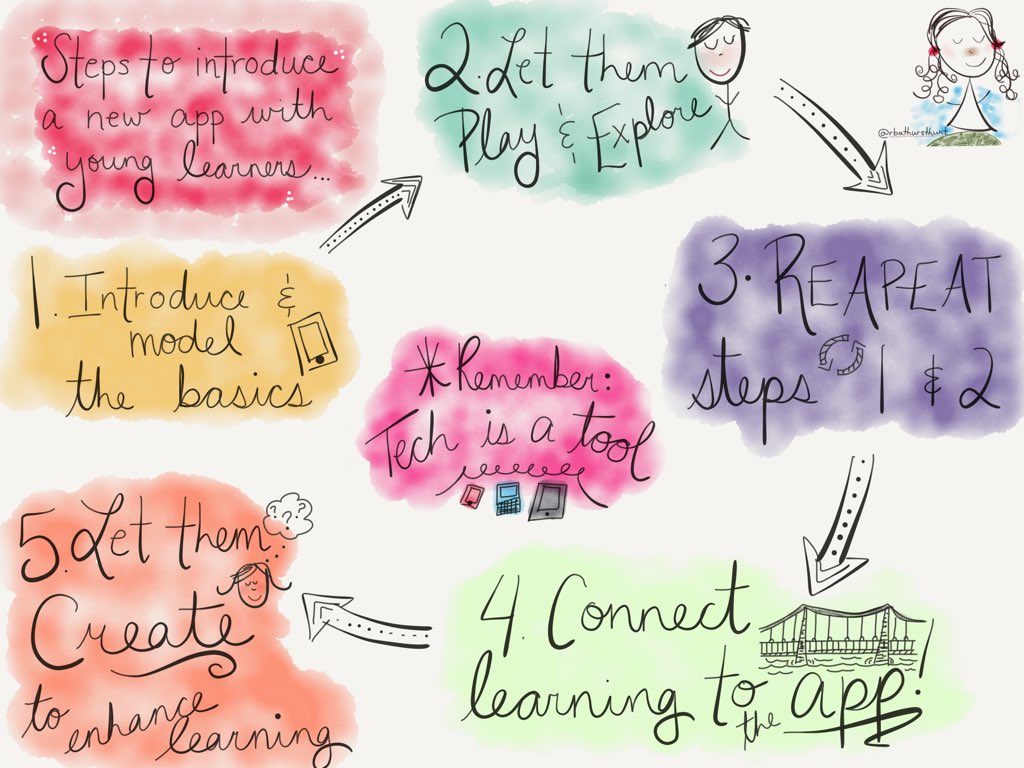 Steps to introduce
a new app with
young learners...
1. Introduce &
model
the basics
2. Let them
Play & Explore
@rbathursthunt
3. REAPEAT
steps 1 & 2
*Remember:
Tech is a tool
4. Connect
learning to the app!
5. Let them
???
Create
to enhance
learning